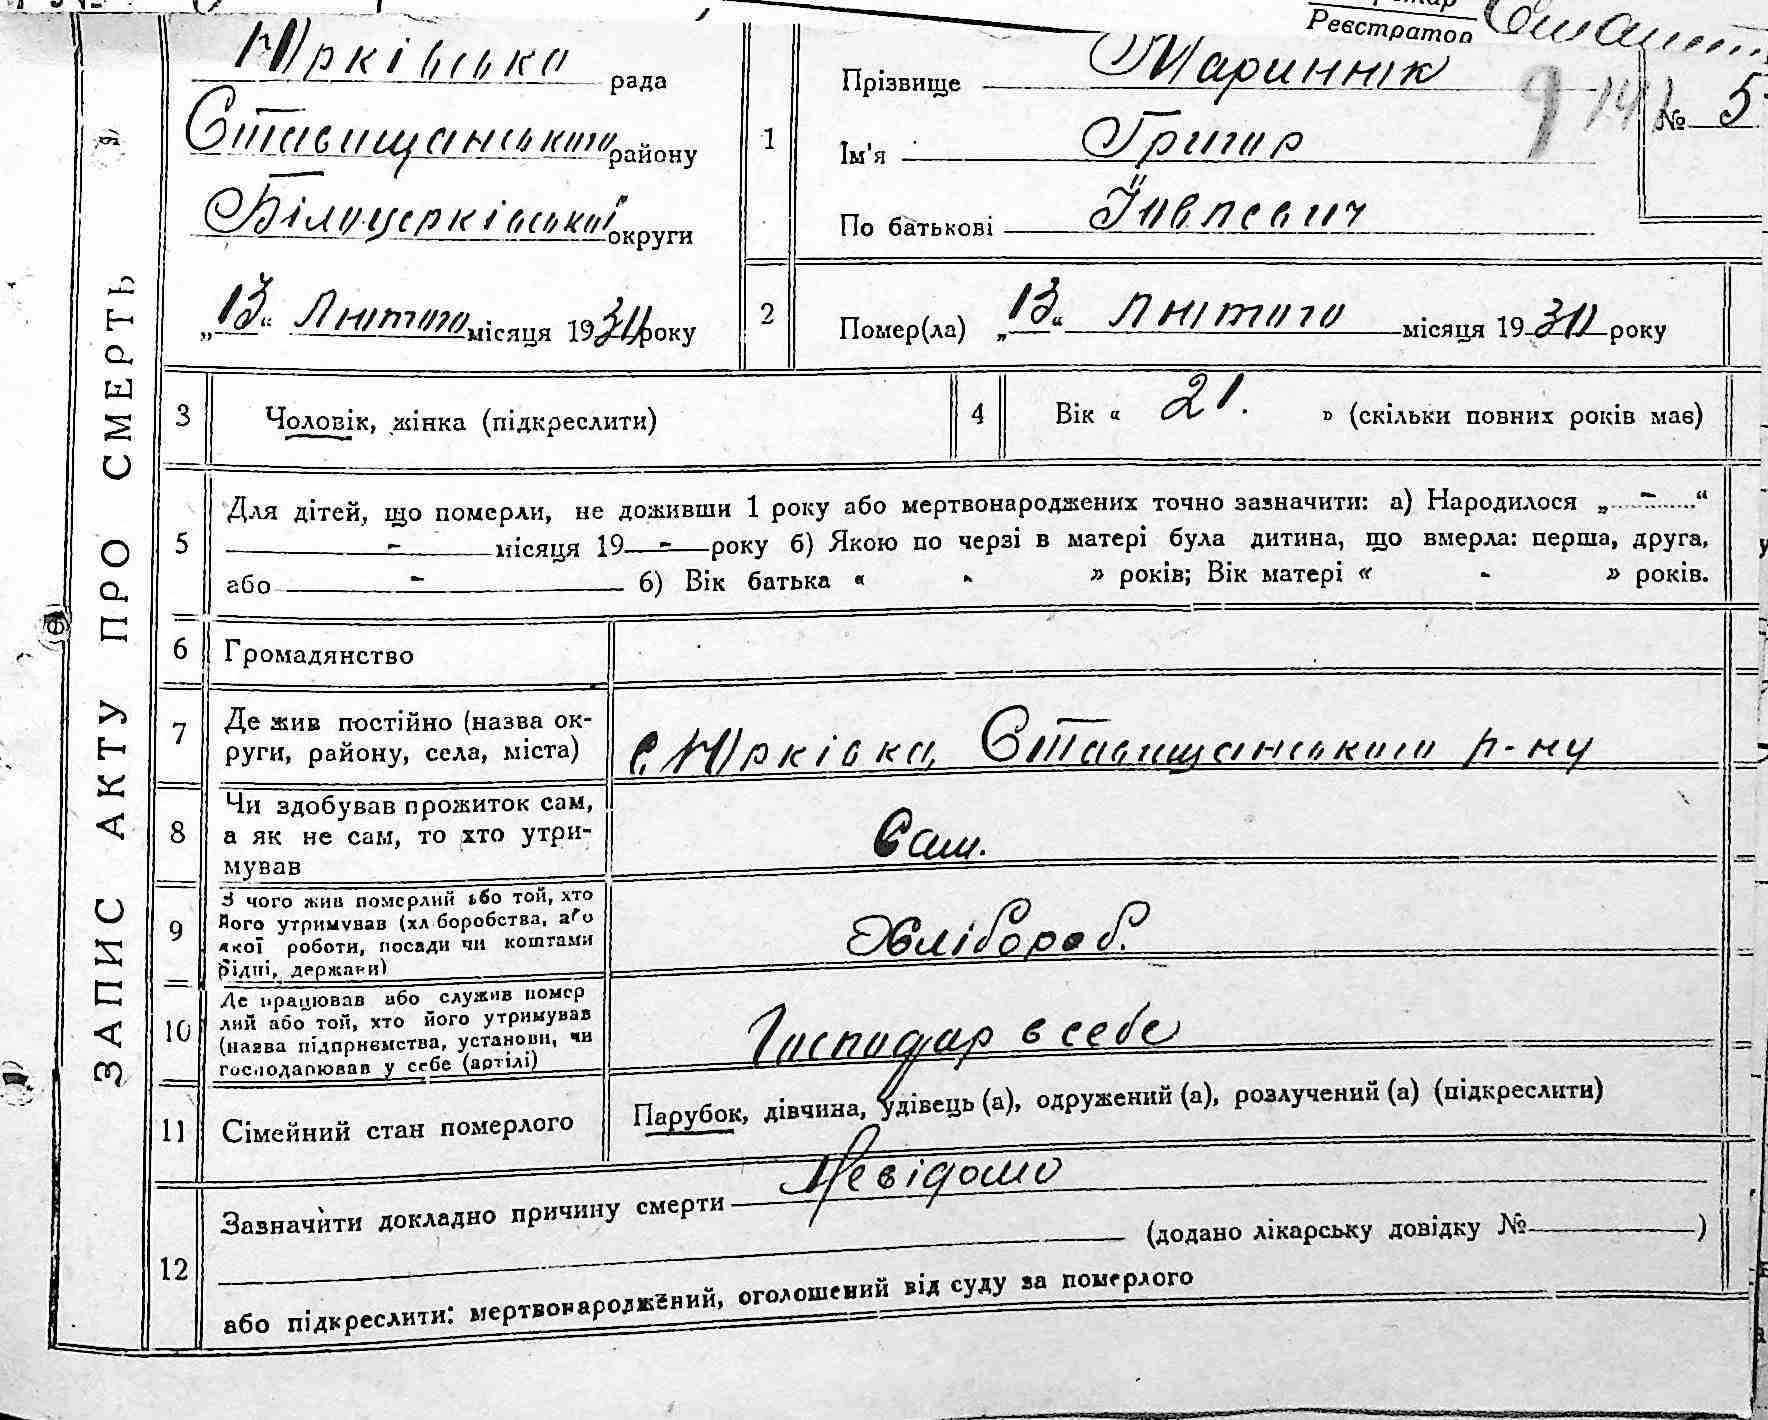 Реєстратор
Юрківська рада
Ставищанського району
Білоцерківської округи
„13“ Лютого місяця 1930 року
ЗАПИС АКТУ ПРО СМЕРТЬ
1
Прізвище Мариннік
№ 5
Ім'я Григор
По батькові
2
Помер(ла) „13“ Лютого місяця 1930 року
3 Чоловік, жінка (підкреслити)
4 Вік « 21. » (скільки повних років має)
5 Для дітей, що померли, не доживши 1 року або мертвонароджених точно зазначити: а) Народилося „ - “
- місяця 19 - року б) Якою по черзі в матері була дитина, що вмерла: перша, друга,
або - б) Вік батька « - » років; Вік матері « - » років.
6 Громадянство
7 Де жив постійно (назва ок-
руги, району, села, міста)
с. Юрківка, Ставищанського р-ну
8 Чи здобував прожиток сам,
а як не сам, то хто утри-
мував
Сам.
9 З чого жив померлий або той, хто
його утримував (хліборобства, або
якої роботи, посади чи коштами
рідні, держави)
Хлібороб.
10 Де працював або служив помер
лий або той, хто його утримував
(назва підприємства, установи, чи
господарював у себе (артілі)
Господар в себе
11 Сімейний стан померлого
Парубок, дівчина, удівець (а), одружений (а), розлучений (а) (підкреслити)
12 Зазначити докладно причину смерти Невідомо
(додано лікарську довідку № )
або підкреслити: мертвонароджений, оголошений від суду за померлого